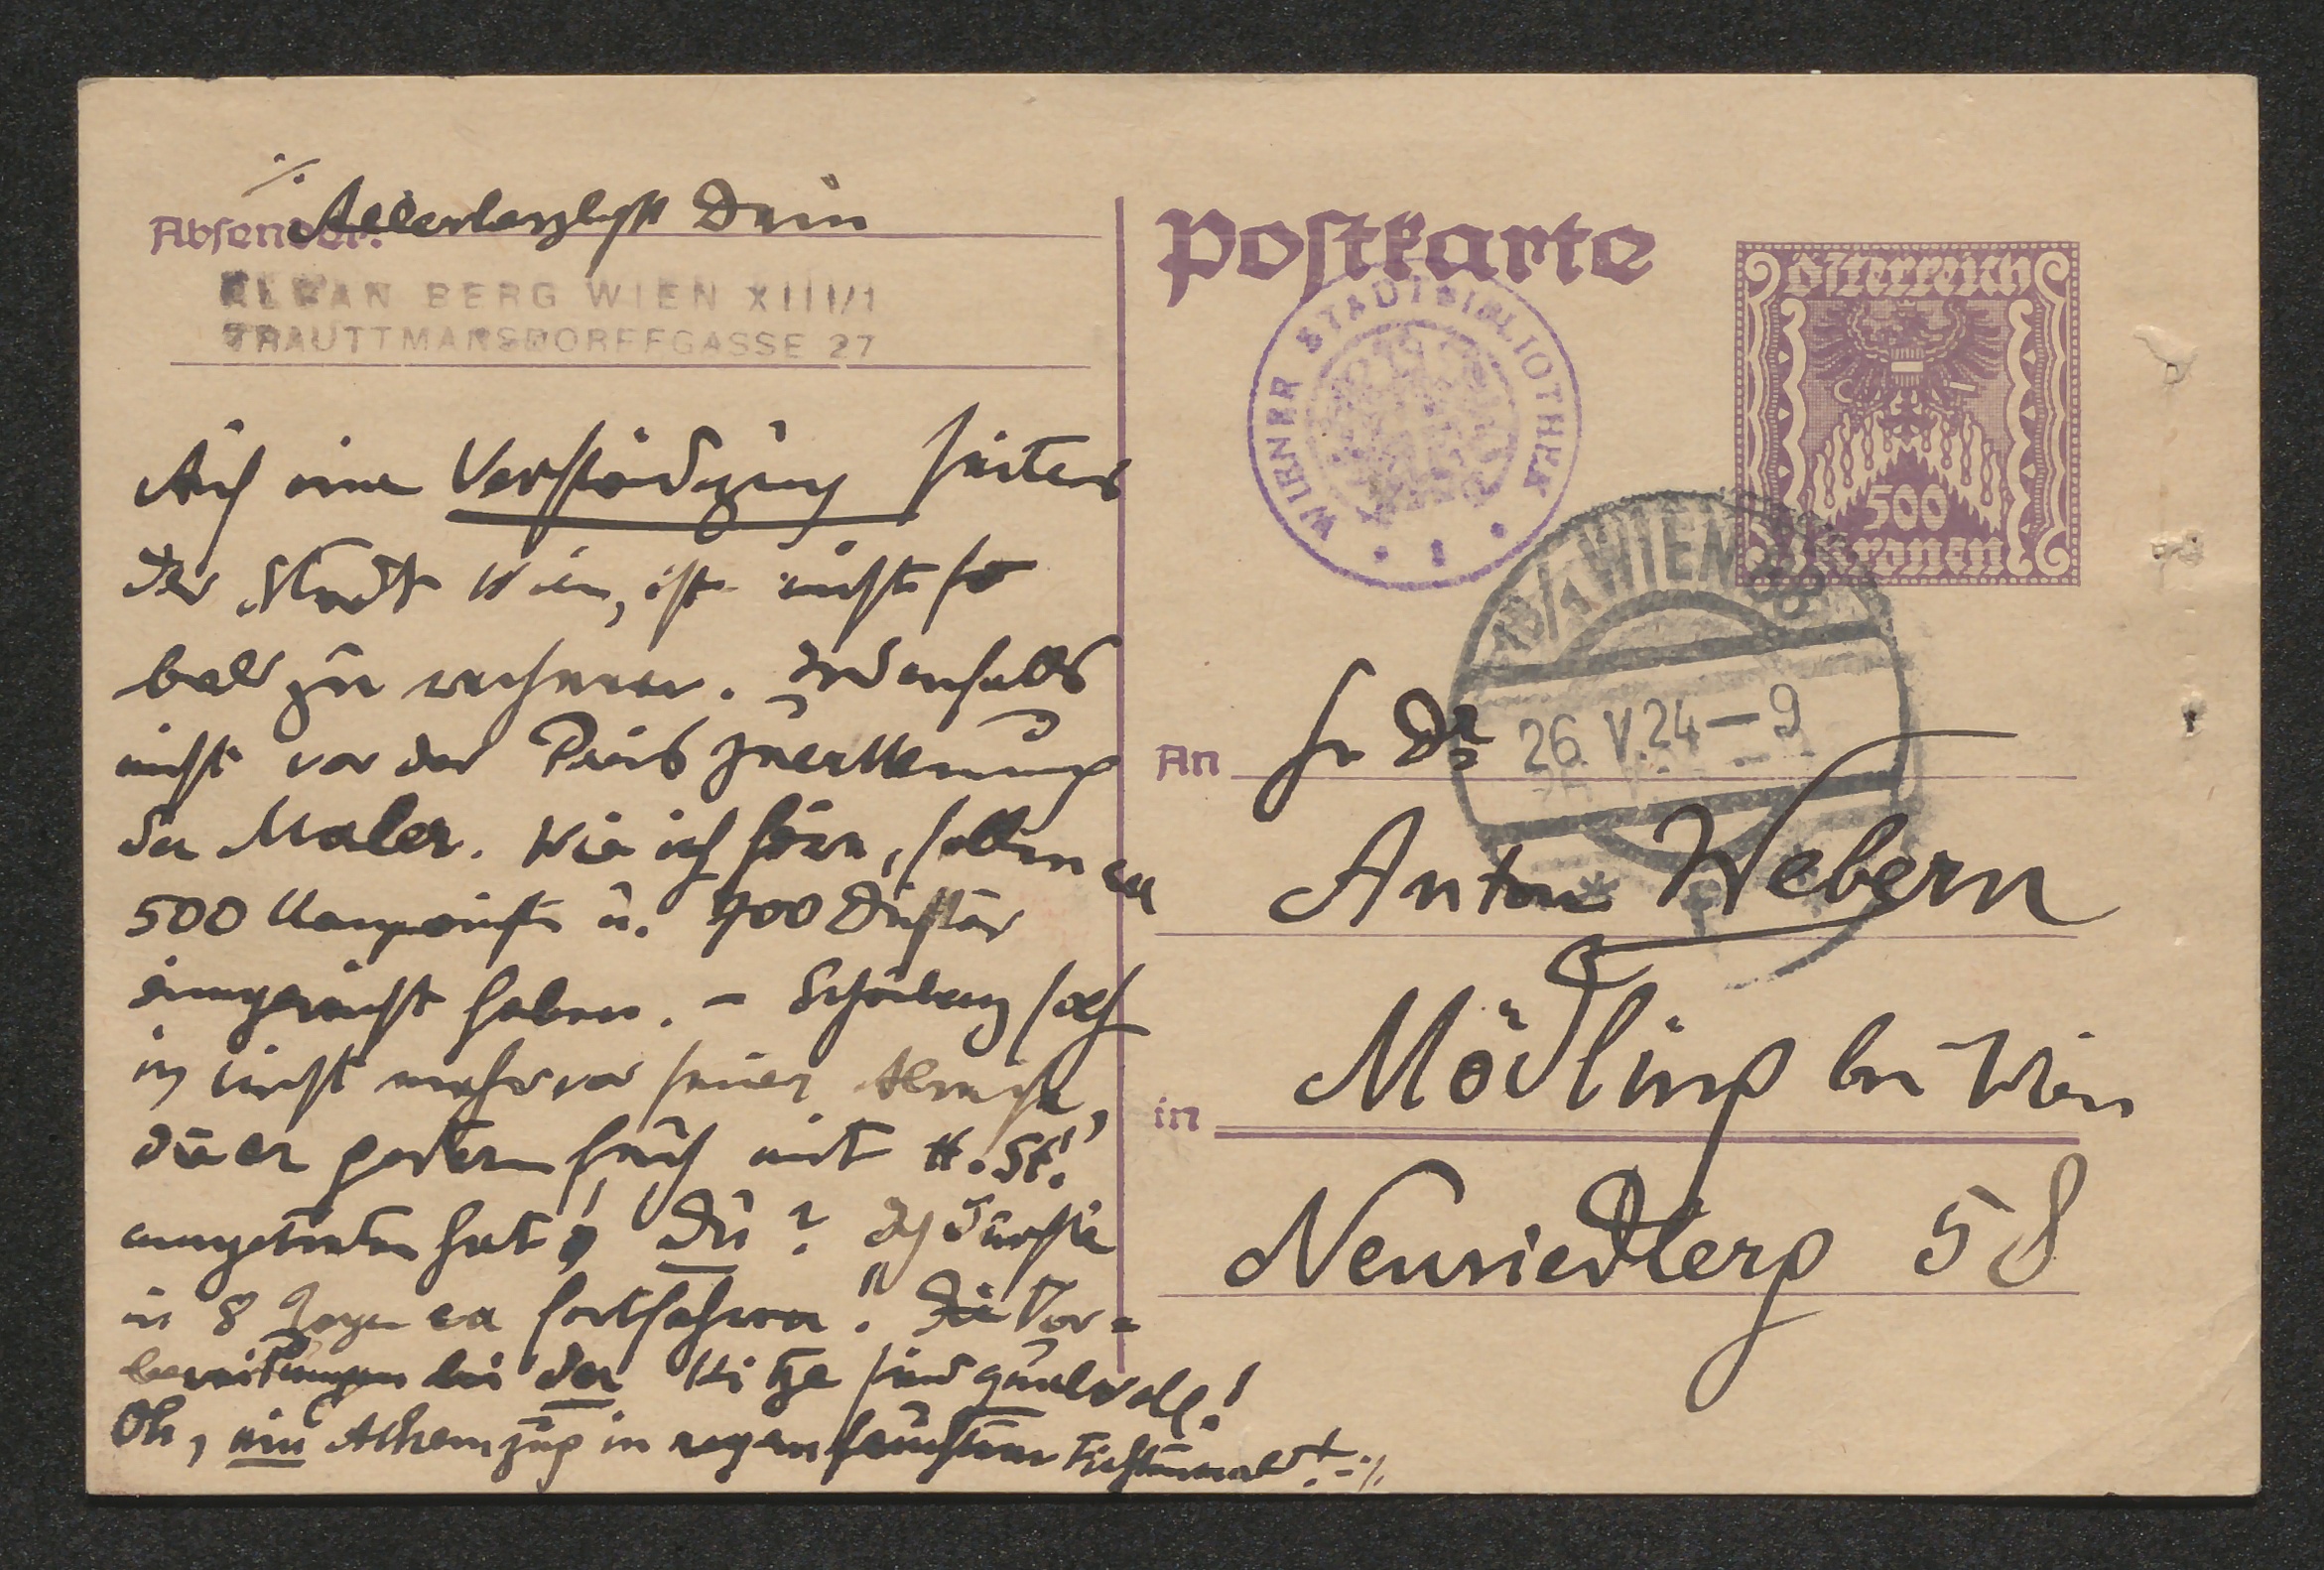 ./.
Allerherzlichst Dein
Absender:
ALBAN BERG WIEN XIII/1
TRAUTTMANSDORFFGASSE 27
Auf eine Verständigung seitens
der Stadt Wien, ist nicht so
bald zu rechnen. Jedenfalls
nicht vor der Preiszuerkennung
der Maler. Wie ich höre, sollen ca
500 Componisten u. 900 Dichter
eingereicht haben. – Schönberg sah
ich nicht mehr vor seiner Abreise,
die er gestern früh mit H. St.
angetreten hat! Du? Ich dürfte
in 8 Tagen ca fortfahren. Die Vor=
bereitungen bei der Hitze sind qualvoll!
Oh, ein Athemzug in regenfeuchtem Fichtenwald! –./.
Postkarte
WIENER STADTBIBLIOTHEK
1
Österreich
500
Kronen
13/1 WIEN
26.V.24–9
An Hr Dr
Anton Webern
in Mödling bei Wien
Neusiedlerg 58